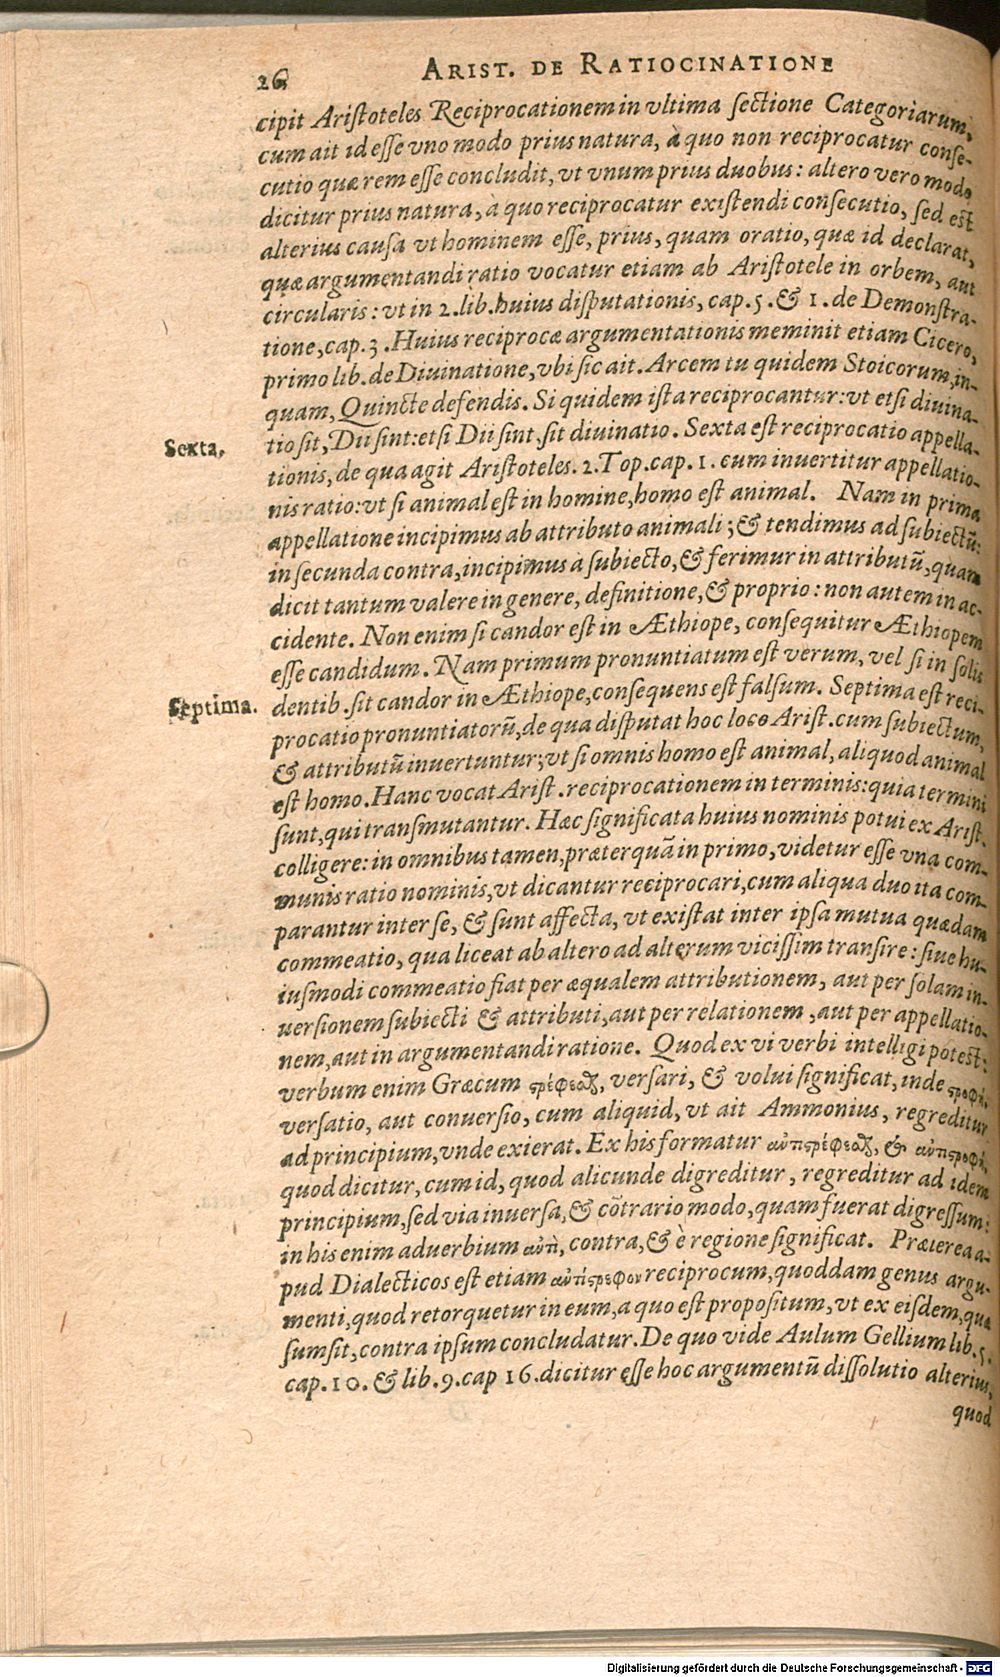 26 ARIST. DE RATIOCINATIONE
cipit Ariſtoteles Reciprocationem in vltima ſectione Categoriarum,
cum ait id eſſe vno modo prius natura, à quo non reciprocatur conſe-
cutio quæ rem eſſe concludit, vt vnum prius duobus: altero vero modo
dicitur prius natura, a quo reciprocatur exiſtendi conſecutio, ſed eſt
alterius cauſa vt hominem eſſe, prius, quam oratio, quæ id declarat,
quæ argumentandi ratio vocatur etiam ab Ariſtotele in orbem, aut
circularis: vt in 2. lib. huius diſputationis, cap. 5. & 1. de Demonſtra-
tione, cap. 3. Huius reciprocæ argumentationis meminit etiam Cicero,
primo lib. de Diuinatione, vbi ſic ait. Arcem tu quidem Stoicorum, in-
quam, Quincte defendis. Si quidem iſta reciprocantur: vt et ſi diuina-
tio ſit, Dii ſint: et ſi Dii ſint, ſit diuinatio. Sexta eſt reciprocatio appella-
Sexta,
tionis, de qua agit Ariſtoteles. 2. Top. cap. 1. cum inuertitur appellatio-
nis ratio: vt ſi animal eſt in homine, homo eſt animal. Nam in prima
appellatione incipimus ab attributo animali; & tendimus ad ſubiectũ:
in ſecunda contra, incipimus à ſubiecto, & ferimur in attributũ, quam
dicit tantum valere in genere, definitione, & proprio: non autem in ac-
cidente. Non enim ſi candor eſt in Æthiope, conſequitur Æthiopem
eſſe candidum. Nam primum pronuntiatum eſt verum, vel ſi in ſolis
dentib. ſit candor in Æthiope, conſequens eſt falſum. Septima eſt reci-
Septima.
procatio pronuntiatorũ, de qua diſputat hoc loco Ariſt. cum ſubiectum,
& attributũ inuertuntur; vt ſi omnis homo eſt animal, aliquod animal
eſt homo. Hanc vocat Ariſt. reciprocationem in terminis: quia termini
ſunt, qui tranſmutantur. Hæc ſignificata huius nominis potui ex Ariſt.
colligere: in omnibus tamen, præterquã in primo, videtur eſſe vna com-
munis ratio nominis, vt dicantur reciprocari, cum aliqua duo ita com-
parantur inter ſe, & ſunt affecta, vt exiſtat inter ipſa mutua quædam
commeatio, qua liceat ab altero ad alterum viciſſim tranſire: ſiue hu-
iuſmodi commeatio fiat per æqualem attributionem, aut per ſolam in-
uerſionem ſubiecti & attributi, aut per relationem, aut per appellatio-
nem, aut in argumentandi ratione. Quod ex vi verbi intelligi poteſt:
verbum enim Græcum ςρέφεσθαι, verſari, & volui ſignificat, inde ςροφή,
verſatio, aut conuerſio, cum aliquid, vt ait Ammonius, regreditur
ad principium, vnde exierat. Ex his formatur ἀντιςρέφεσθαι, & ἀντιςροφή,
quod dicitur, cum id, quod alicunde digreditur, regreditur ad idem
principium, ſed via inuerſa, & cõtrario modo, quam fuerat digreſſum:
in his enim aduerbium ἀντὶ, contra, & è regione ſignificat. Præterea a-
pud Dialecticos eſt etiam ἀντίςρεφον reciprocum, quoddam genus argu-
menti, quod retorquetur in eum, a quo eſt propoſitum, vt ex eiſdem, quæ
ſumſit, contra ipſum concludatur. De quo vide Aulum Gellium lib. 5.
cap. 10. & lib. 9. cap 16. dicitur eſſe hoc argumentũ diſſolutio alterius,
quod
Digitalisierung gefördert durch die Deutsche Forschungsgemeinschaft - DFG